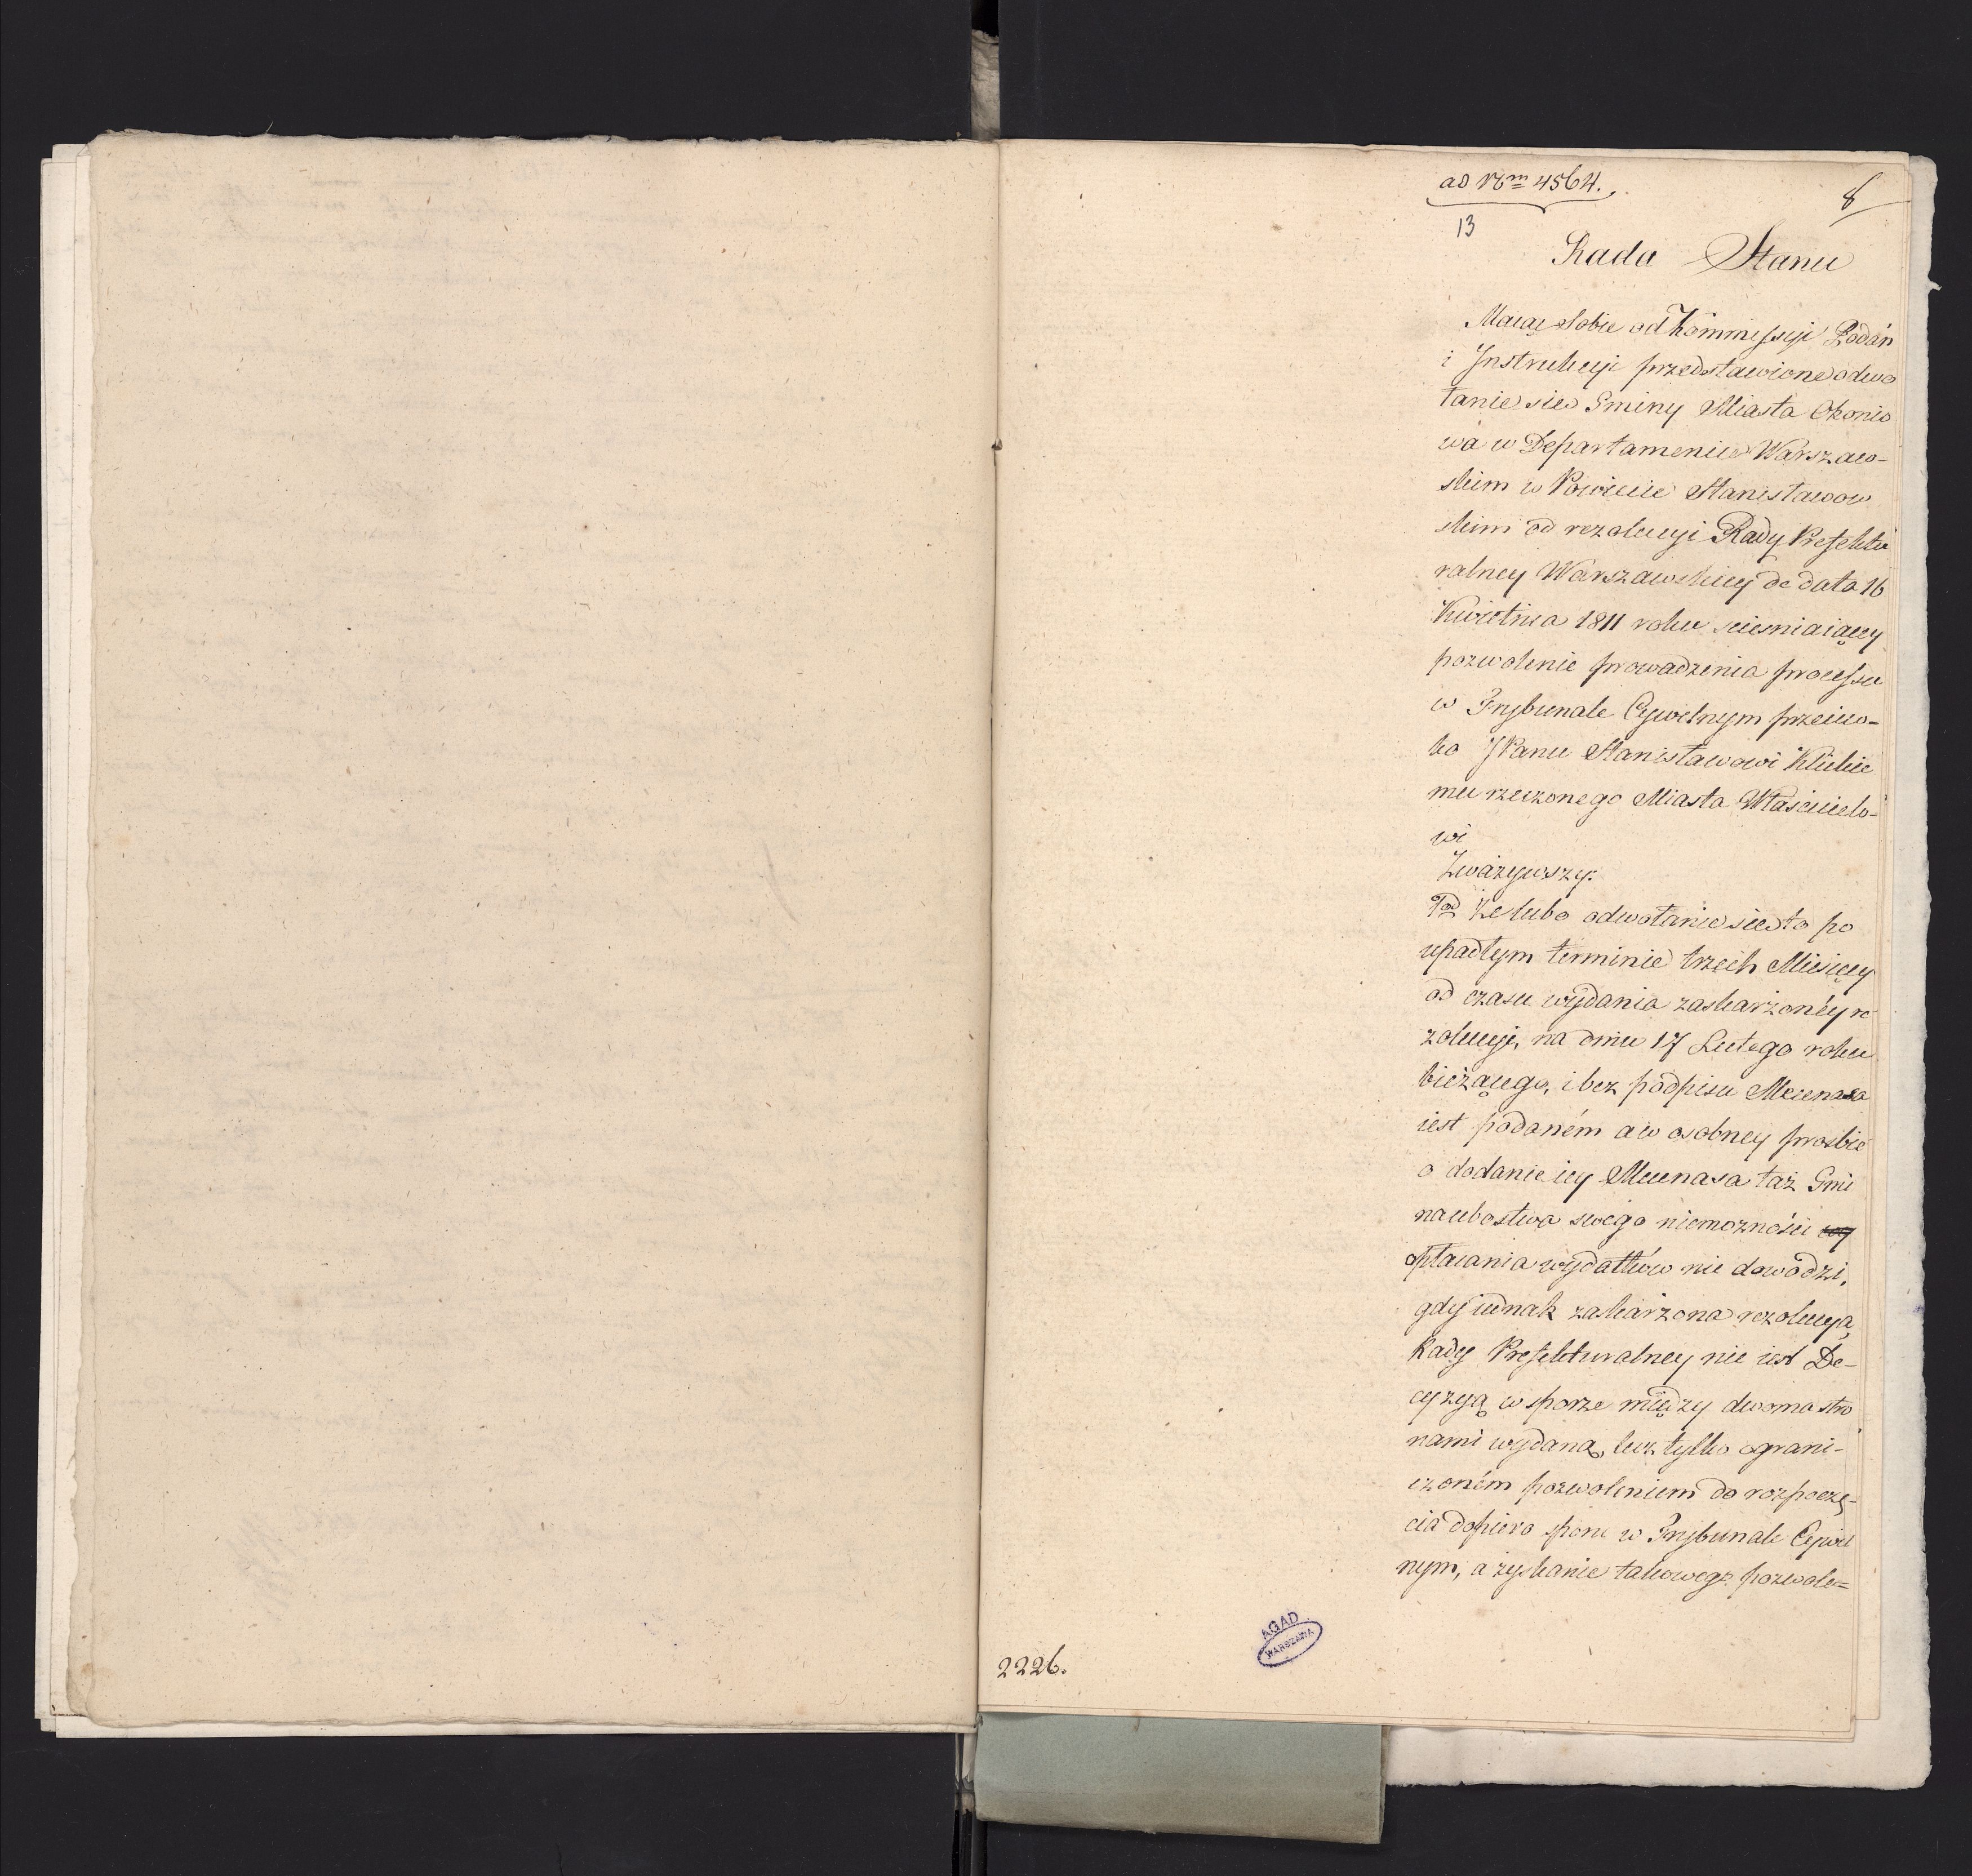 ad Nrm 4564.
13
8
Rada Stanu
Maiąc sobie od Kommissyi Podań
i Instrukcyi przedstawione odwo
łanie sie Gminy Miasta Okonie
wa w Departamencie Warszaw-
skim w Powiecie Stanisławow
skim od rezolucyi Rady Prefektu
ralney Warszawskiey de dato 16
Kwietnia 1811 roku scieśniaiącey
pozwolenie prowadzenia processu
w Trybunale Cywilnym przeciw-
ko JPanu Stanisławowi Klickie
mu rzeczonego Miasta Właścicielo-
wi
Zważywszy:
1od Że lubo odwołanie sie to po
upadłym terminie trzech Miesięcy
od czasu wydania zaskarżonéy re
zolucyi, na dniu 17 Lutego roku
bieżącego, i bez podpisu Mecenasa
iest podaném a w osobney prosbie
o dodanie iey Mecenasa taż Gmi
na ubostwa swego niemożności
opłacania wydatków nie dowodzi,
gdy iednak zaskarżona rezolucya
Rady Prefekturalney nie iest De-
cyzyą w sporze między dwoma stro
nami wydaną, lecz tylko ograni-
czoném pozwoleniem do rozpoczę-
cia dopiero sporu w Trybunale Cywil
nym, a zyskanie takowego pozwole=
2226.
AGAD
WARSZAWA